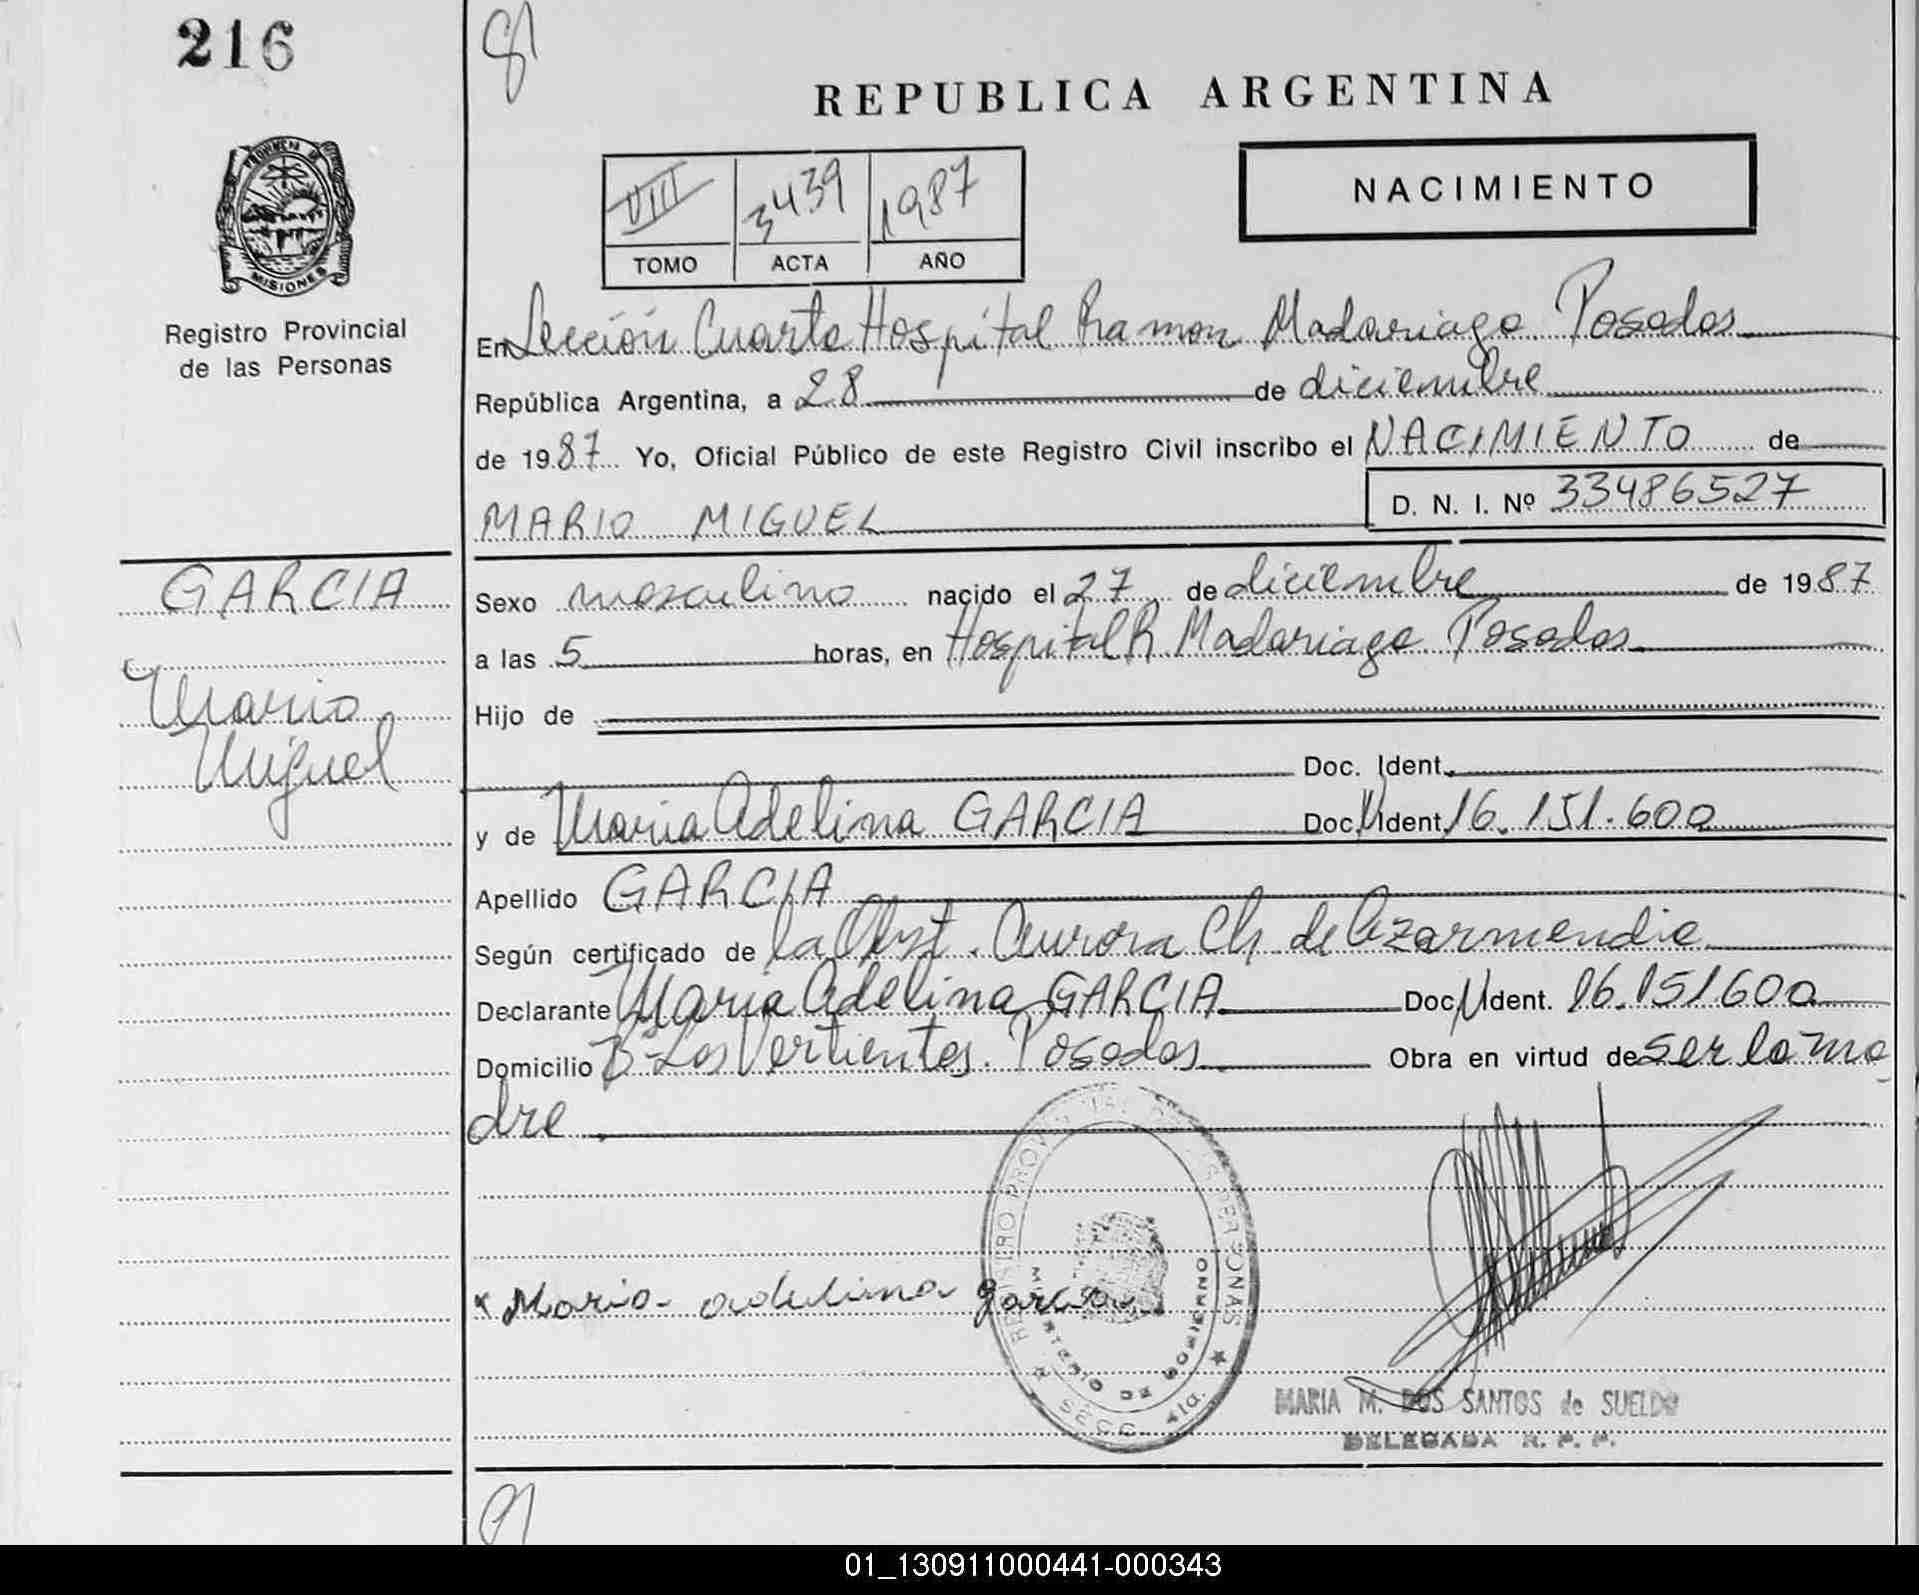 216
REPUBLICA ARGENTINA
VIII 3439 1987
TOMO ACTA AÑO
NACIMIENTO
PROVINCIA DE MISIONES
Registro Provincial
de las Personas
En Sección Cuarta Hospital Ramon Madariaga Posadas
República Argentina, a 28 de diciembre
de 1987 Yo, Oficial Público de este Registro Civil inscribo el NACIMIENTO de
MARIO MIGUEL D. N. I. Nº 33486527
GARCIA
Mario
Miguel
Sexo masculino nacido el 27 de diciembre de 1987
a las 5 horas, en Hospital R Madariaga Posadas
Hijo de
Doc. Ident.
y de Maria Adelina GARCIA Doc. N Ident. 16.151.600
Apellido GARCIA
Según certificado de la Obst. Aurora Ch de Lizarmendia
Declarante Maria Adelina GARCIA Doc N Ident. 16.151600
Domicilio Bº Las Vertientes. Posadas Obra en virtud de ser la ma
dre.
x Maria adelina garcia
REGISTRO PROVINCIAL DE LAS PERSONAS
MINISTERIO DE GOBIERNO
SECC. 4ta.
MARIA M. DOS SANTOS de SUELDO
DELEGADA R. P. P.
01_130911000441-000343